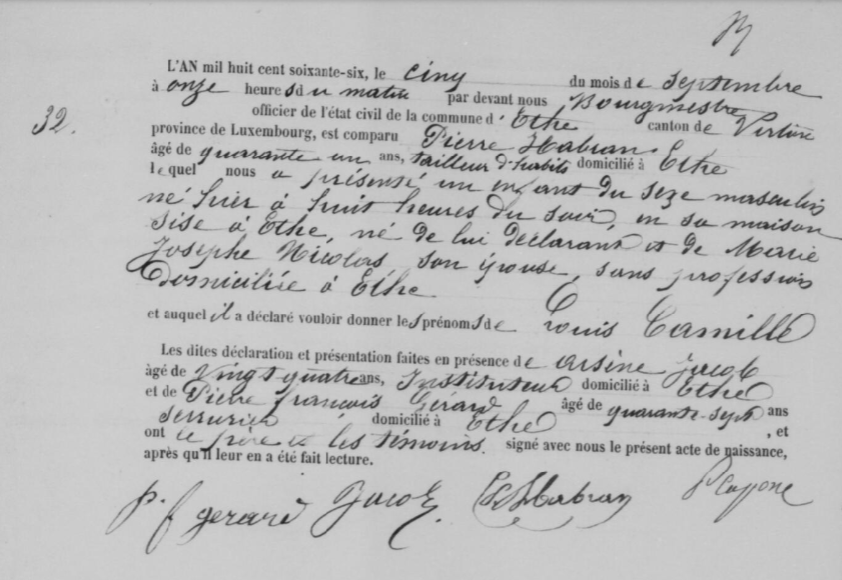 L'AN mil huit cent soixante-six, le cinq du mois de Septembre
à onze heures du matin par devant nous Bourgmestre
32.
officier de l'état civil de la commune d'Ethe canton de Virton
province de Luxembourg, est comparu Pierre Habran
âgé de quarante un ans, tailleur d'habits domicilié à Ethe
lequel nous a présenté un enfant du sexe masculin
né hier à huit heures du soir, en sa maison
sise à Ethe, né de lui déclarant et de Marie
Josephe Nicolas son épouse, sans profession
Domiciliée à Ethe
et auquel il a déclaré vouloir donner les prénoms de Louis Camille
Les dites déclaration et présentation faites en présence de Arsène Jacob
âgé de Vingt quatre ans, Instituteur domicilié à Ethe
et de Pierre François Gérard âgé de quarante-sept ans
Serrurier domicilié à Ethe , et
ont le père et les témoins. signé avec nous le présent acte de naissance,
après qu'il leur en a été fait lecture.
p. f gerard Jacob Habran